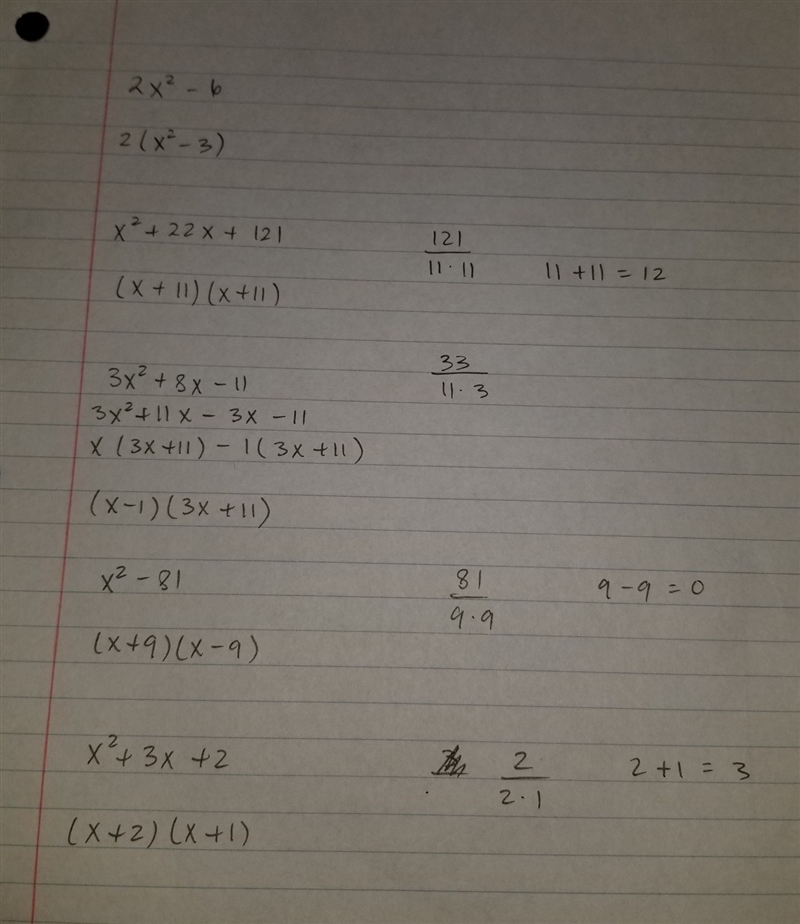 2x² - 6
2(x² - 3)
x² + 22x + 121
121
11·11
11 + 11 = 12
(x + 11)(x + 11)
3x² + 8x - 11
33
11·3
3x² + 11x - 3x - 11
x(3x + 11) - 1(3x + 11)
(x - 1)(3x + 11)
x² - 81
81
9·9
9 - 9 = 0
(x + 9)(x - 9)
x² + 3x + 2
2
2·1
2 + 1 = 3
(x + 2)(x + 1)